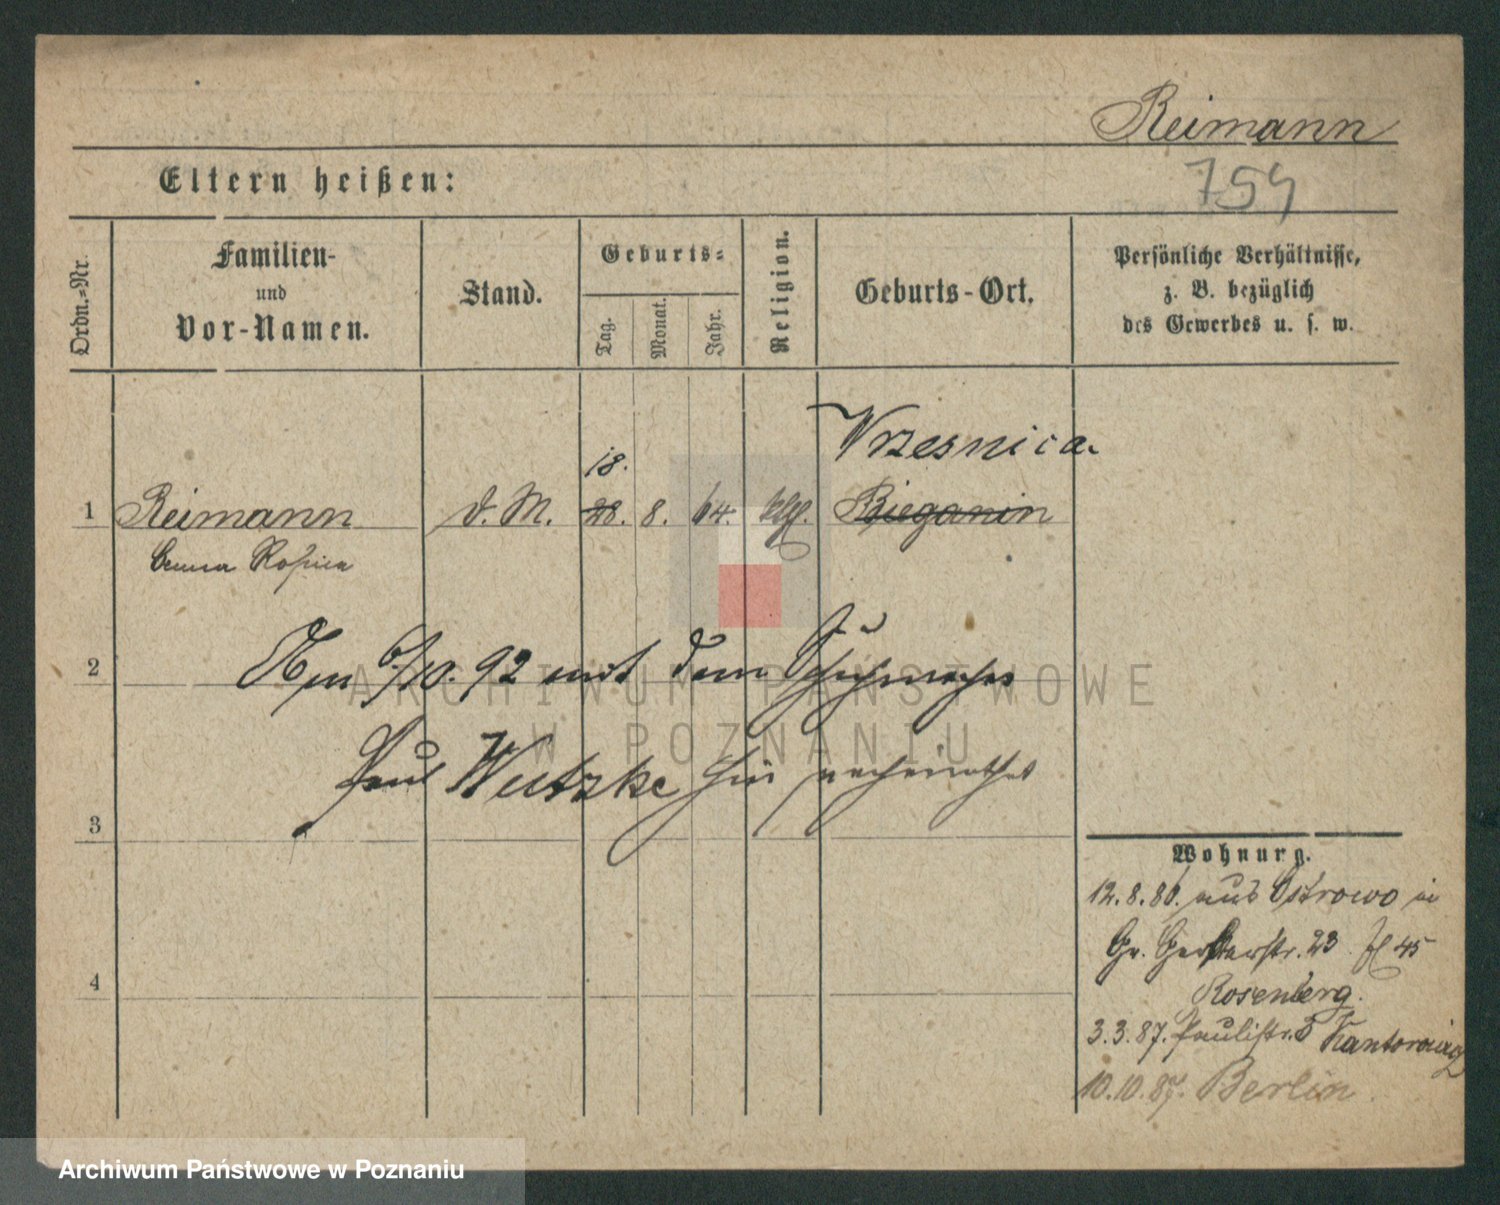 Reimann
754
Eltern heißen:
Ordn.=Nr.
Familien-
und
Vor-Namen.
Stand.
Geburts=
Tag.
Monat.
Jahr.
Religion.
Geburts-Ort.
Persönliche Verhältnisse,
z. B. bezüglich
des Gewerbes u. s. w.
Wrzesnica
18.
1 Reimann d. M. 28. 8. 64. Bieganin
Rosina
2
Am 6/10. 92 mit dem Schuhmacher
Paul Wutzke hier verheirathet
3
Wohnung.
12.8.86. aus Ostrowo in
Gr. Gerberstr. 23 45
4
Rosenberg.
3.3.87. Paulistr. 5 Kantorowicz
10.10.87. Berlin.
ARCHIWUM PAŃSTWOWE
W POZNANIU
Archiwum Państwowe w Poznaniu